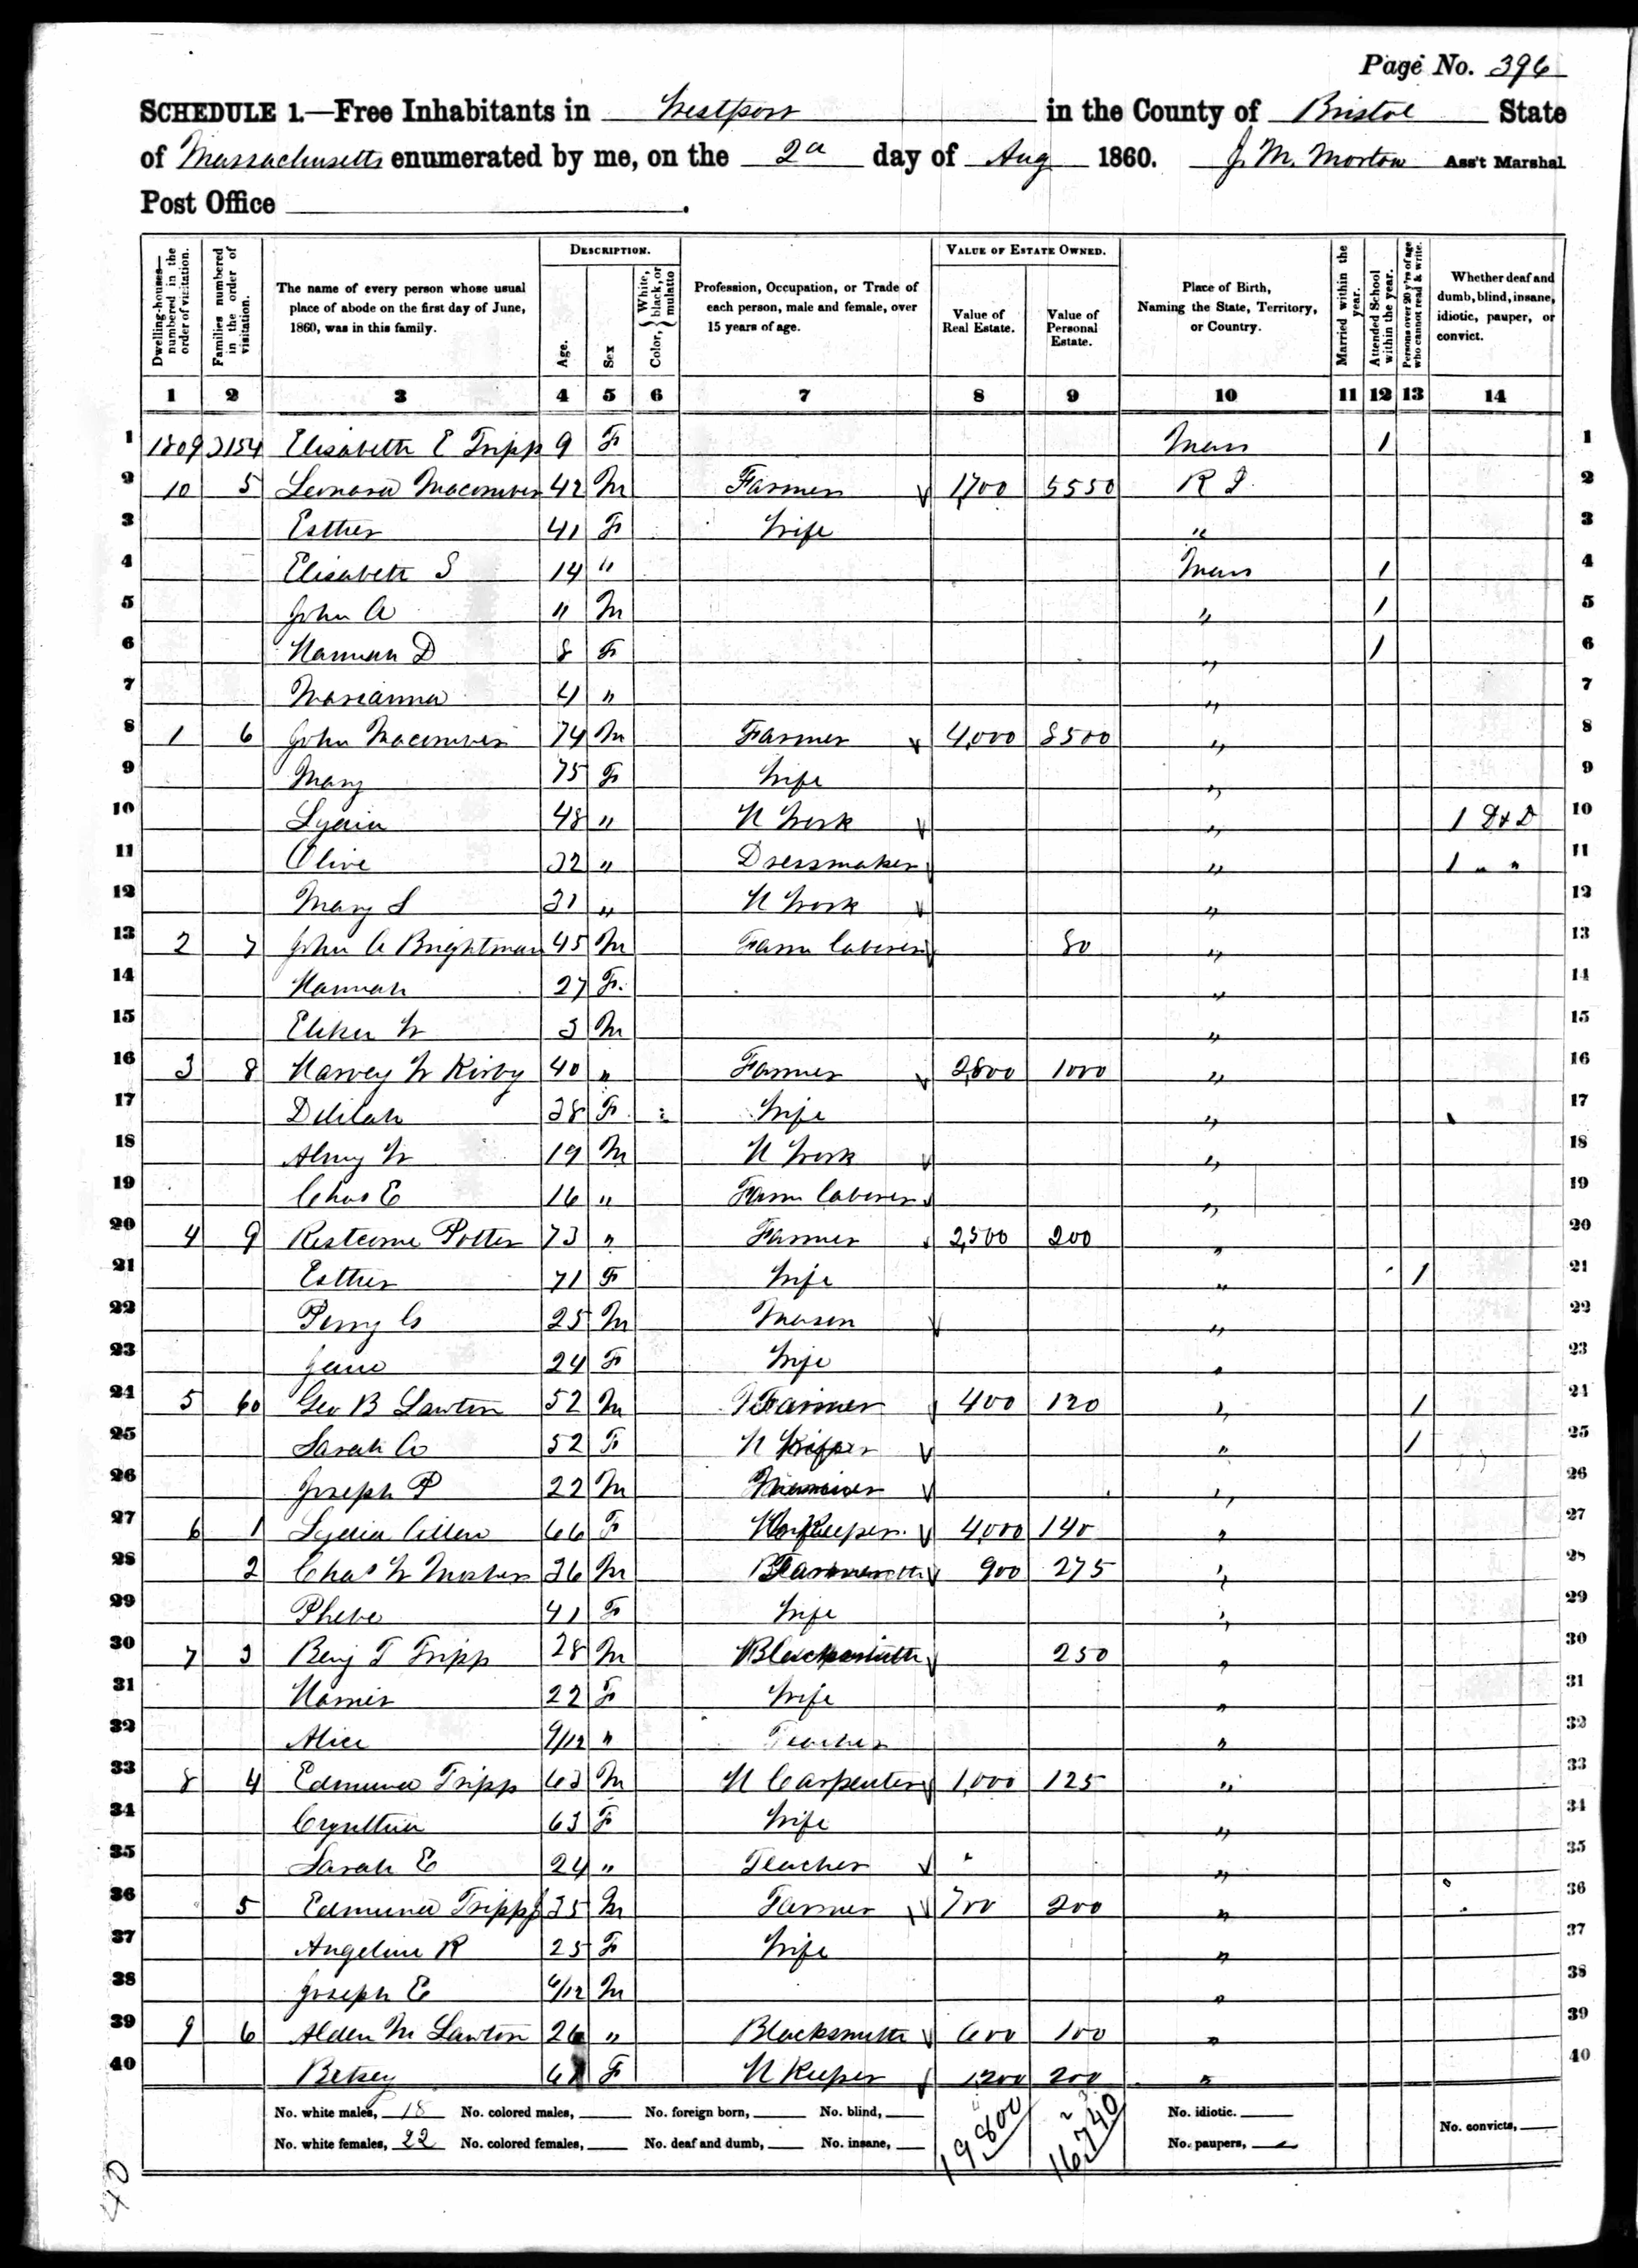 Page No. 396
SCHEDULE 1.—Free Inhabitants in Westport in the County of Bristol State
of Massachusetts enumerated by me, on the 2d day of Aug 1860. J. M. Morton Ass't Marshal
Post Office .
Dwelling-houses—numbered in the order of visitation. Families numbered in the order of visitation. The name of every person whose usual place of abode on the first day of June, 1860, was in this family. DESCRIPTION. Age. Sex Color, White, black, or mulatto Profession, Occupation, or Trade of each person, male and female, over 15 years of age. VALUE OF ESTATE OWNED. Value of Real Estate. Value of Personal Estate. Place of Birth, Naming the State, Territory, or Country. Married within the year. Attended School within the year. Persons over 20 y'rs of age who cannot read & write. Whether deaf and dumb, blind, insane, idiotic, pauper, or convict.
1 2 3 4 5 6 7 8 9 10 11 12 13 14
1 1809 2154 Elisabeth E Tripp 9 F Mass 1 1
2 10 5 Leonard Macomber 42 M Farmer 1,700 5550 R I. 2
3 Esther 41 F Wife " 3
4 Elisabeth S 14 " Mass 1 4
5 John A 11 M " 1 5
6 Hannah D 8 F " 1 6
7 Marianna 4 " " 7
8 1 6 John Macomber 74 M Farmer 4,000 8500 " 8
9 Mary 75 F Wife " 9
10 Lydia 48 " H Work " 1 D & D 10
11 Olive 32 " Dressmaker " 1 " " 11
12 Mary S 31 " H Work " 12
13 2 7 John A Brightman 45 M Farm laborer 80 " 13
14 Hannah 27 F. " 14
15 W 3 M " 15
16 3 8 Harvey W Kirby 40 " Farmer 2,800 1000 " 16
17 Delilah 38 F Wife " 17
18 Almy W 19 M H Work " 18
19 Chas E 16 " Farm laborer " 19
20 4 9 Restcome Potter 73 " Farmer 2,500 200 " 20
21 Esther 71 F Wife " 1 21
22 Perry G 25 M Mason " 22
23 Jane 24 F Wife " 23
24 5 60 Geo B Lawton 52 M Farmer 400 120 " 1 24
25 Sarah A 52 F H " 1 25
26 Joseph P 22 M " 26
27 6 1 Lydia Allen 66 F Keeper. 4,000 140 " 27
28 2 Chas W Mosher 36 M 900 275 " 28
29 Phebe 41 F Wife " 29
30 7 3 Benj T Tripp 28 M Blacksmith 250 " 30
31 22 F Wife " 31
32 Alice 9/12 " Teacher " 32
33 8 4 Edmund Tripp 63 M H Carpenter 1,000 125 " 33
34 Cynthia 63 F Wife " 34
35 Sarah E 24 " Teacher " 35
36 5 Edmund Tripp J 35 M Farmer 700 200 " 36
37 Angeline R 25 F Wife " 37
38 Joseph E /12 M " 38
39 9 6 Alden M Lawton 26 " Blacksmith 600 100 " 39
40 Betsey F H Keeper 1,200 200 " 40
No. white males, 18 No. colored males, No. foreign born, No. blind, No. idiotic.
No. white females, 22 No. colored females, No. deaf and dumb, No. insane, 19,800 16,740 No. paupers, No. convicts,
40